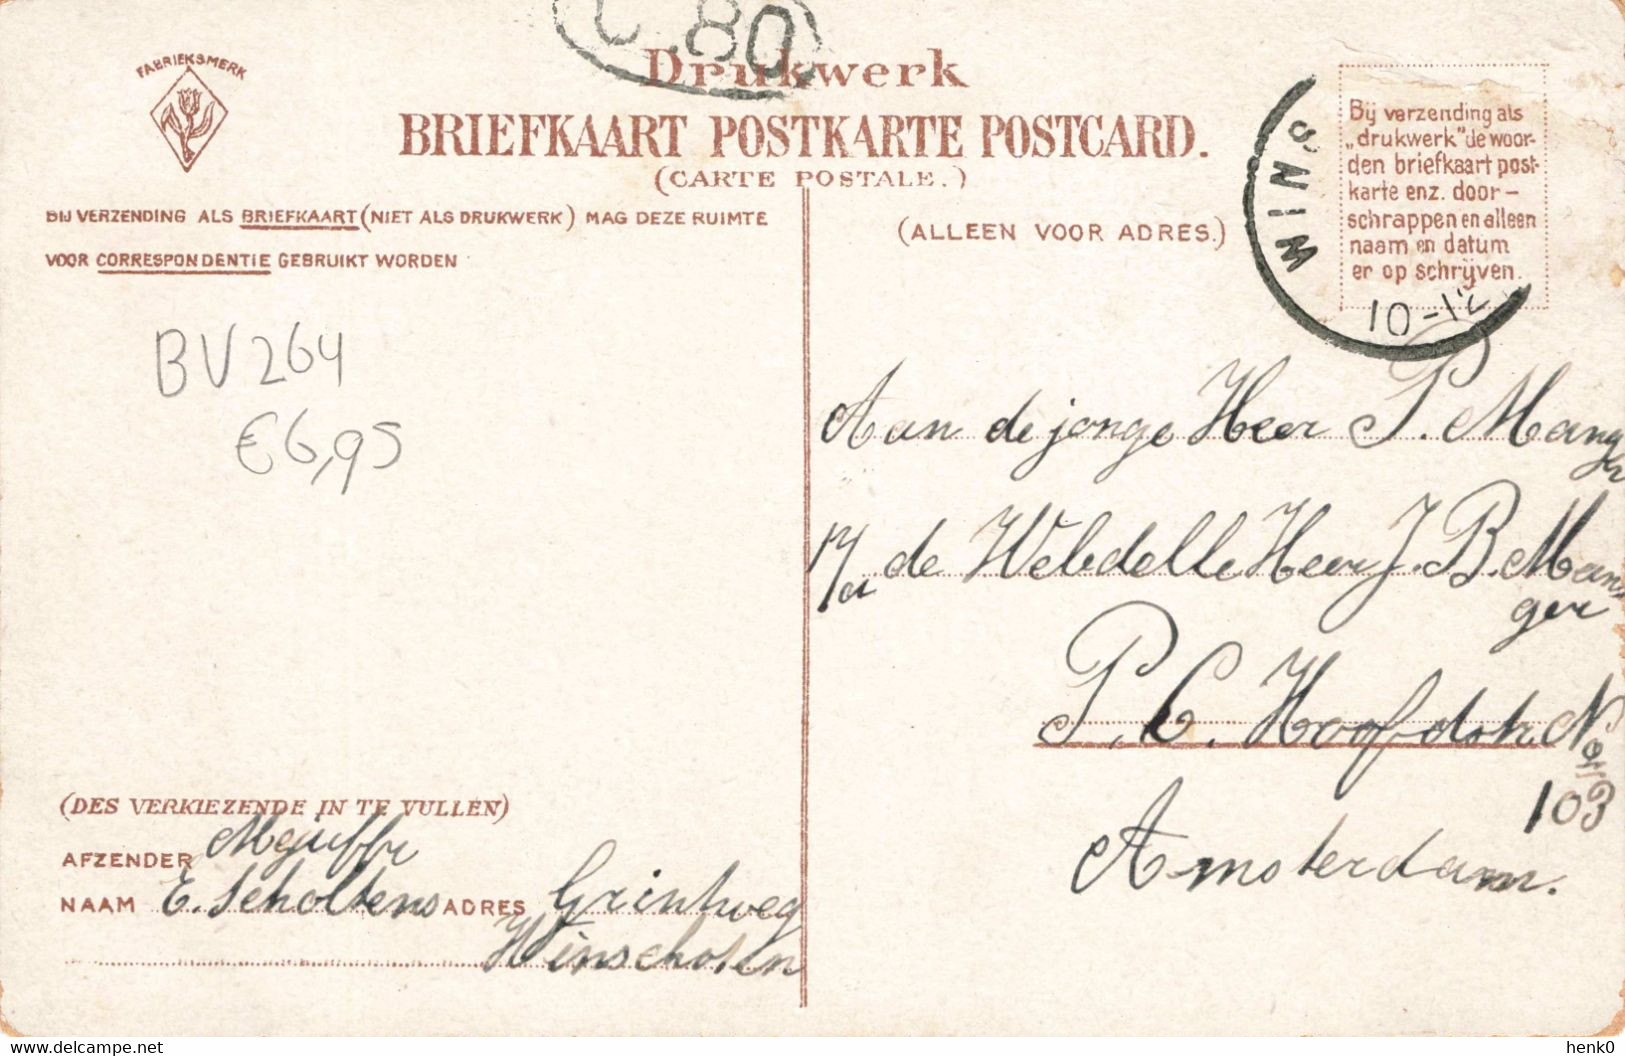 FABRIEKSMERK
C 80
Drukwerk
BRIEFKAART POSTKARTE POSTCARD.
(CARTE POSTALE.)
BIJ VERZENDING ALS BRIEFKAART (NIET ALS DRUKWERK) MAG DEZE RUIMTE
VOOR CORRESPONDENTIE GEBRUIKT WORDEN
(ALLEEN VOOR ADRES.)
WINS
10-12
Bij verzending als
„drukwerk” de woor-
den briefkaart post-
karte enz. door-
schrappen en alleen
naam en datum
er op schrijven.
BV264
€6,95
Aan de jonge Heer P. Mang
de Weledelle Heer J. B. Man
ger
P. C. Hoofdstr. No
103
Amsterdam.
(DES VERKIEZENDE IN TE VULLEN)
AFZENDER Mejuffr
NAAM E. Scholtens ADRES Grintweg
Winschoten
delcampe.net
henk0